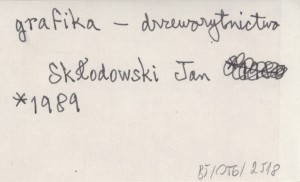 grafika – drzeworytnictwo
Skłodowski Jan
*1989
BJ/OTG/2J18